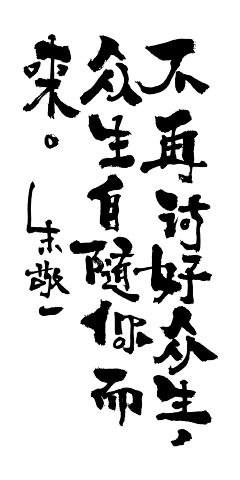 不再讨好众生，
众生自随你而
來。
朱敬一